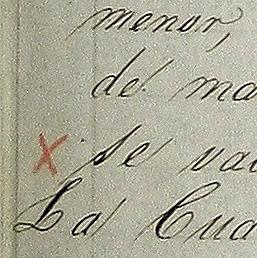 menor,
de ma
x se va
La Cua